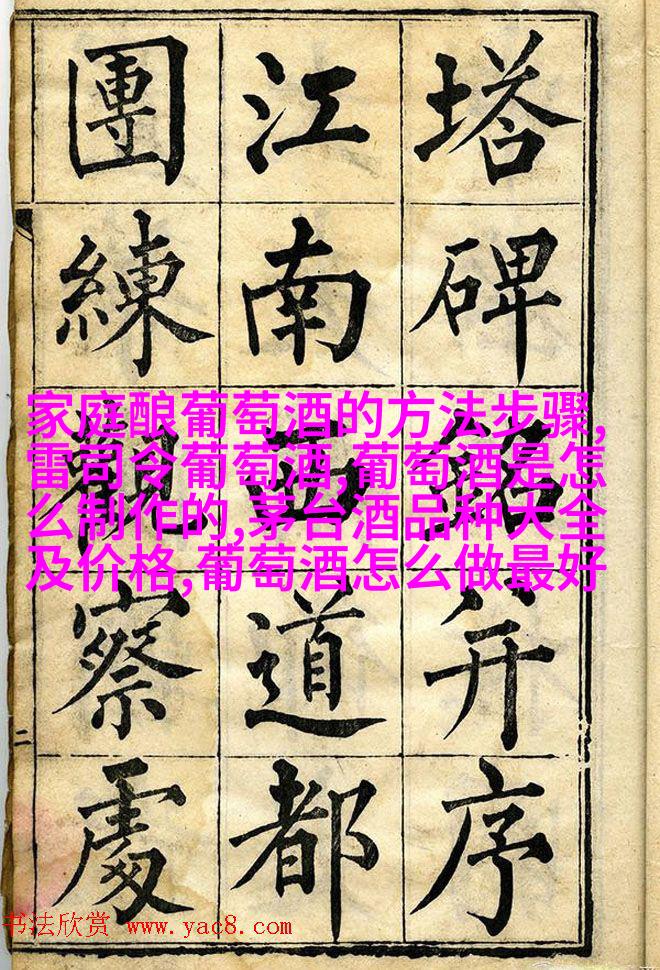 塔碑銘并序
江南西道都
團練觀察處
二
家庭酿葡萄酒的方法步骤,
雷司令葡萄酒,葡萄酒是怎
么制作的,茅台酒品种大全
及价格,葡萄酒怎么做最好
书法欣赏 www.yac8.com